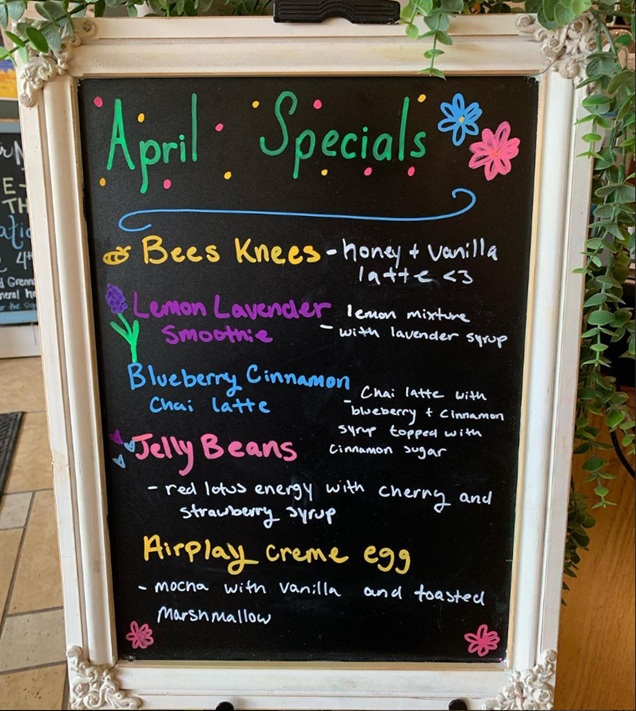 April Specials
Bees Knees - honey + vanilla
latte <3
Lemon Lavender
Smoothie
- lemon mixture
with lavender syrup
Blueberry Cinnamon
Chai latte
- Chai latte with
blueberry + cinnamon
syrup topped with
cinnamon sugar
Jelly Beans
- red lotus energy with cherry and
strawberry syrup
Airplay creme egg
- mocha with vanilla and toasted
Marshmallow